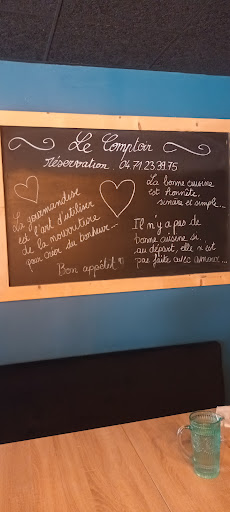 Le Comptoir
réservation. 04.71.23.39.75
La gourmandise
est l'art d'utiliser
de la nourriture
pour créer du bonheur...
Bon appétit
La bonne cuisine
est honnête,
sincère et simple...
Il n'y a pas de
bonne cuisine si,
au départ, elle n'est
pas faite avec amour...